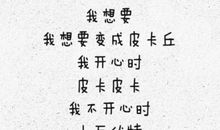 我想要
我想要变成皮卡丘
我开心时
皮卡皮卡
我不开心时
十万伏特